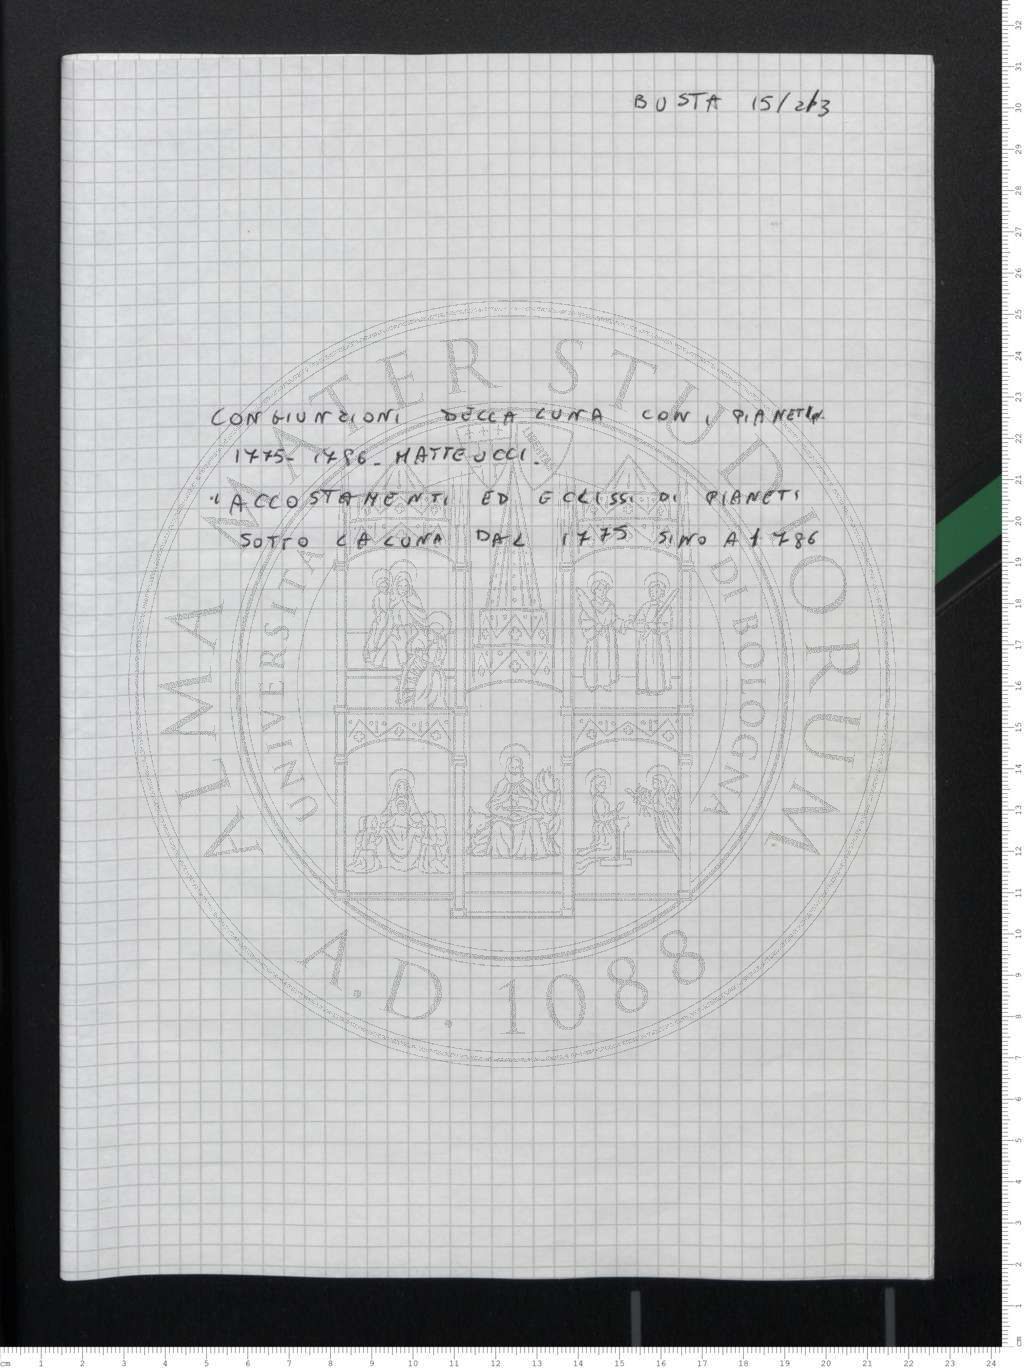 BUSTA 15/2/3
CONGIUNZIONI DELLA LUNA CON I PIANETI
1775- 1786- MATTEUCCI.
"ACCOSTAMENTI ED ECLISSI DI PIANETI
SOTTO LA LUNA DAL 1775 SINO A 1786
ALMA MATER STUDIORUM
UNIVERSITA DI BOLOGNA
A.D. 1088